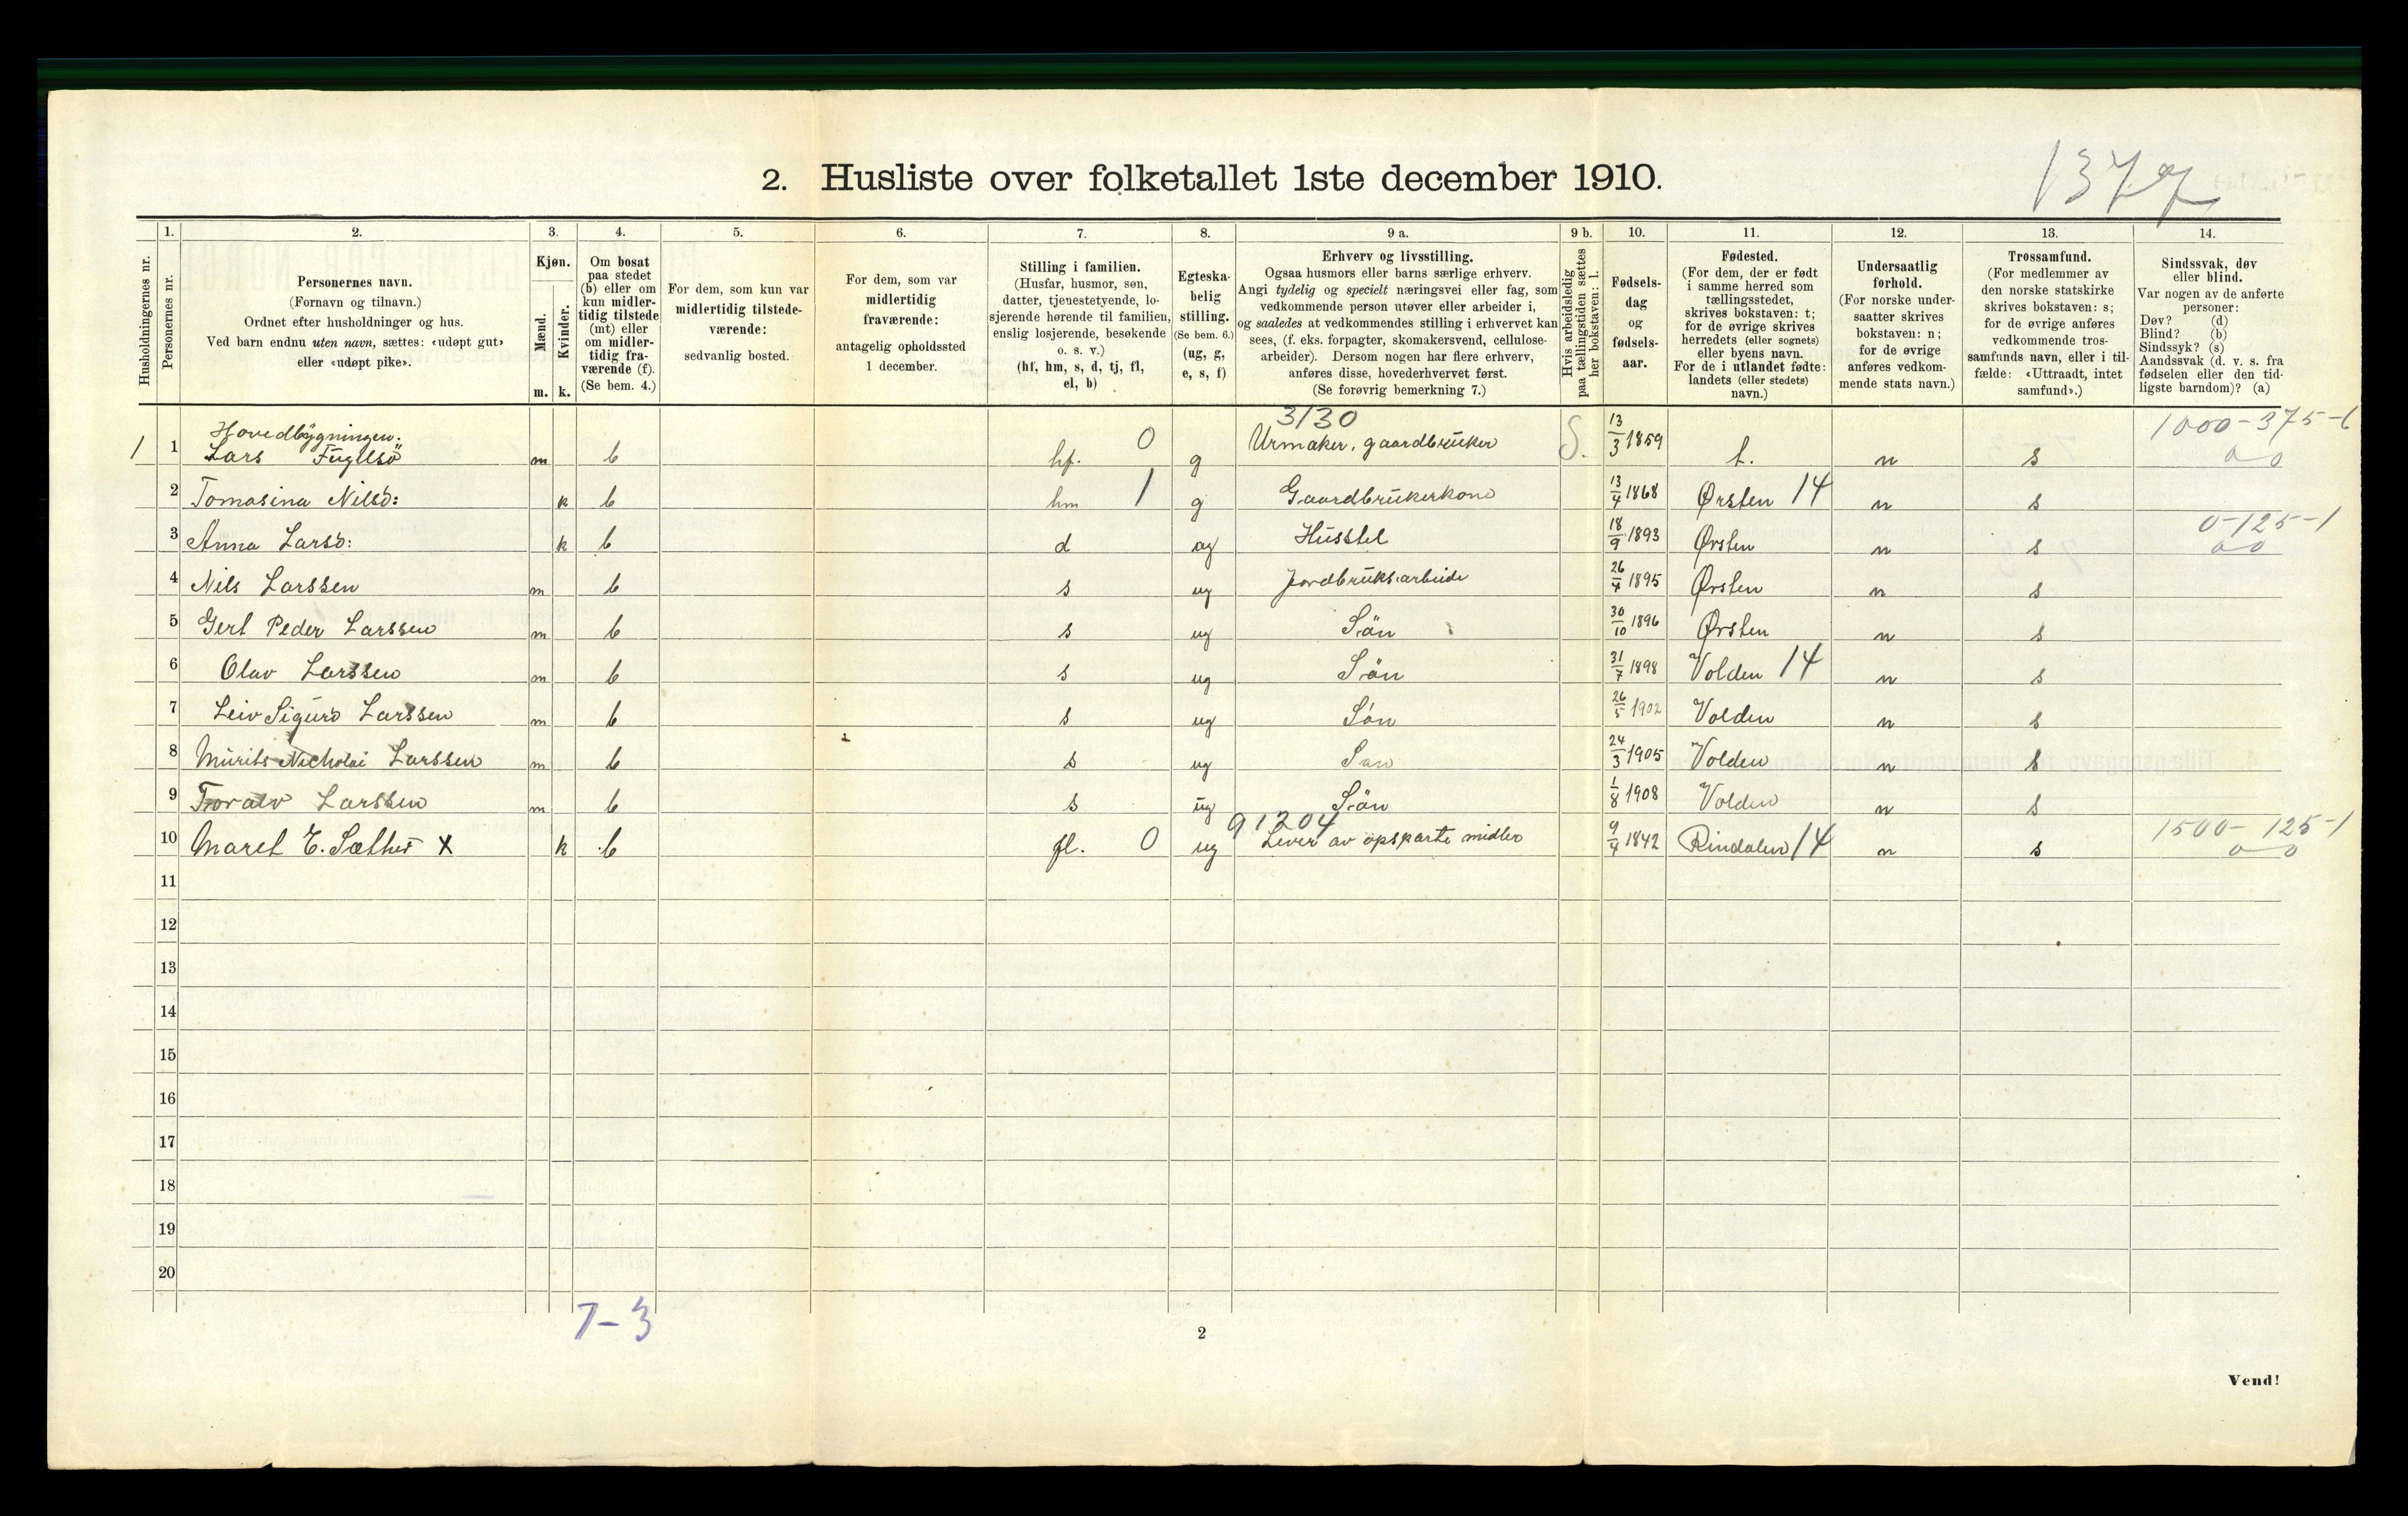 2. Husliste over folketallet 1ste december 1910.
1377
Husholdningernes nr.
1.
Personernes nr.
2.
Personernes navn.
(Fornavn og tilnavn.)
Ordnet efter husholdninger og hus.
Ved barn endnu uten navn, sættes: «udøpt gut»
eller «udøpt pike».
3.
Kjøn.
Mænd.
Kvinder.
m. k.
4.
Om bosat
paa stedet
(b) eller om
kun midler-
tidig tilstede
(mt) eller
om midler-
tidig fra-
værende (f).
(Se bem. 4.)
5.
For dem, som kun var
midlertidig tilstede-
værende:
sedvanlig bosted.
6.
For dem, som var
midlertidig
fraværende:
antagelig opholdssted
1 december.
7.
Stilling i familien.
(Husfar, husmor, søn,
datter, tjenestetyende, lo-
sjerende hørende til familien,
enslig losjerende, besøkende
o. s. v.)
(hf, hm, s, d, tj, fl,
el, b)
8.
Egteska-
belig
stilling.
(Se bem. 6.)
(ug, g,
e, s, f)
9 a.
Erhverv og livsstilling.
Ogsaa husmors eller barns særlige erhverv.
Angi tydelig og specielt næringsvei eller fag, som
vedkommende person utøver eller arbeider i,
og saaledes at vedkommendes stilling i erhvervet kan
sees, (f. eks. forpagter, skomakersvend, cellulose-
arbeider). Dersom nogen har flere erhverv,
anføres disse, hovederhvervet først.
(Se forøvrig bemerkning 7.)
9 b.
Hvis arbeidsledig
paa tællingstiden sættes
her bokstaven: l.
10.
Fødsels-
dag
og
fødsels-
aar.
11.
Fødested.
(For dem, der er født
i samme herred som
tællingsstedet,
skrives bokstaven: t;
for de øvrige skrives
herredets (eller sognets)
eller byens navn.
For de i utlandet fødte:
landets (eller stedets)
navn.)
12.
Undersaatlig
forhold.
(For norske under-
saatter skrives
bokstaven: n;
for de øvrige
anføres vedkom-
mende stats navn.)
13.
Trossamfund.
(For medlemmer av
den norske statskirke
skrives bokstaven: s;
for de øvrige anføres
vedkommende tros-
samfunds navn, eller i til-
fælde: «Uttraadt, intet
samfund».)
14.
Sindssvak, døv
eller blind.
Var nogen av de anførte
personer:
Døv? (d)
Blind? (b)
Sindssyk? (s)
Aandssvak (d. v. s. fra
fødselen eller den tid-
ligste barndom)? (a)
Hovedbygningen. 3130 1000-375-6
1 1 Lars Fuglsö m b hf. 0 g Urmaker, gaardbruker S. 13/3 1859 t. n s 0 0
2 Tomasina Nilsd: k b hm 1 g Gaardbrukerkone 13/4 1868 Ørsten 14 n s
3 Anna Larsd: k b d ug Husstel 18/9 1893 Ørsten n s 0-125-1 0 0
4 Nils Larssen m b s ug Jordbruksarbeide 26/4 1895 Ørsten n s
5 Gert Peder Larssen m b s ug Sön 30/10 1896 Ørsten n s
6 Olav Larssen m b s ug Sön 31/7 1898 Volden 14 n s
7 Leiv Sigurd Larssen m b s ug Sön 26/5 1902 Volden n s
8 Murits Nicholai Larssen m b s ug Sön 24/3 1905 Volden n s
9 Toralv Larssen m b s ug Sön 1/8 1908 Volden n s
91204 1500-125-1
10 Maret E. Sæther X k b fl. 0 ug Lever av opsparte midler 9/4 1842 Rindalen 14 n s 0 0
11
12
13
14
15
16
17
18
19
20
7-3
2
Vend!